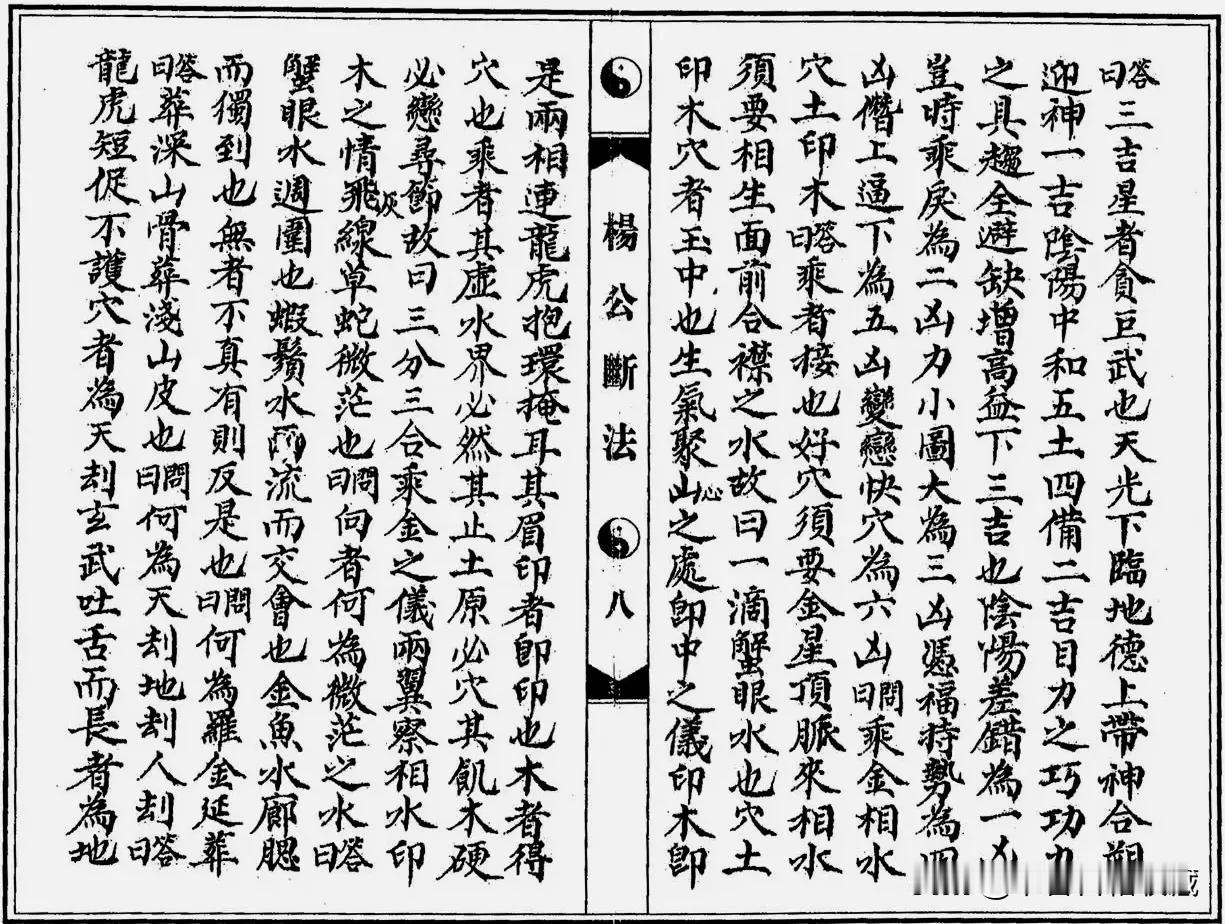 答曰三吉星者貪巨武也天光下臨地德上帶神合朔
迎神一吉陰陽中和五土四備二吉目力之巧功力
之具趨全避缺增高益下三吉也陰陽差錯為一凶
豈時乘戾為二凶力小圖大為三凶憑福恃勢為四
凶僭上逼下為五凶變戀怏穴為六凶問曰乘金相水
穴土印木答曰乘者接也好穴須要金星頂脈來相水
須要相生面前合襟之水故曰一滴蟹眼水也穴土
印木穴者玉中也生氣聚山心之處卽中之儀印木卽
楊公斷法
八
是兩相連龍虎抱環掩耳其眉印者卽印也木者得
穴也乘者其虛水界必然其止土原必穴其飢木硬
必戀尋飾故曰三分三合乘金之儀兩翼察相水印
木之情飛灰線草蛇微茫也問曰向者何為微茫之水答曰
蟹眼水週圍也蝦鬚水兩流而交會也金魚水廊腮
而獨到也無者不真有則反是也問曰何為羅金延葬
答曰葬深山骨葬淺山皮也問曰何為天刦地刦人刦答曰
龍虎短促不護穴者為天刦玄武吐舌而長者為地
藏